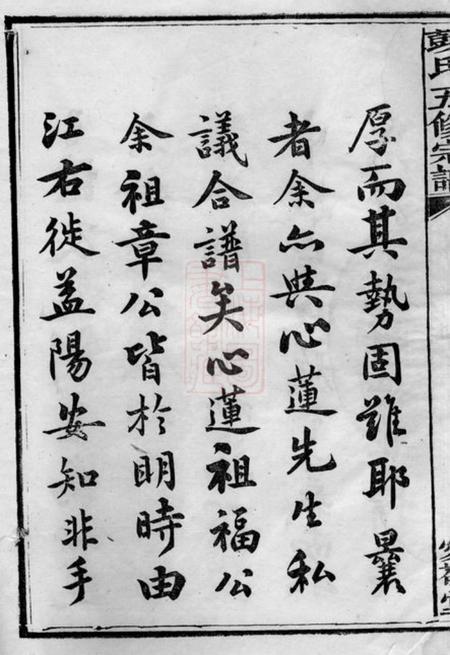 彭氏五修宗譜
厚而其勢固難耶曩
者余亦與心蓮先生私
議合譜矣心蓮祖福公
余祖章公皆於明時由
江右徙益陽安知非手